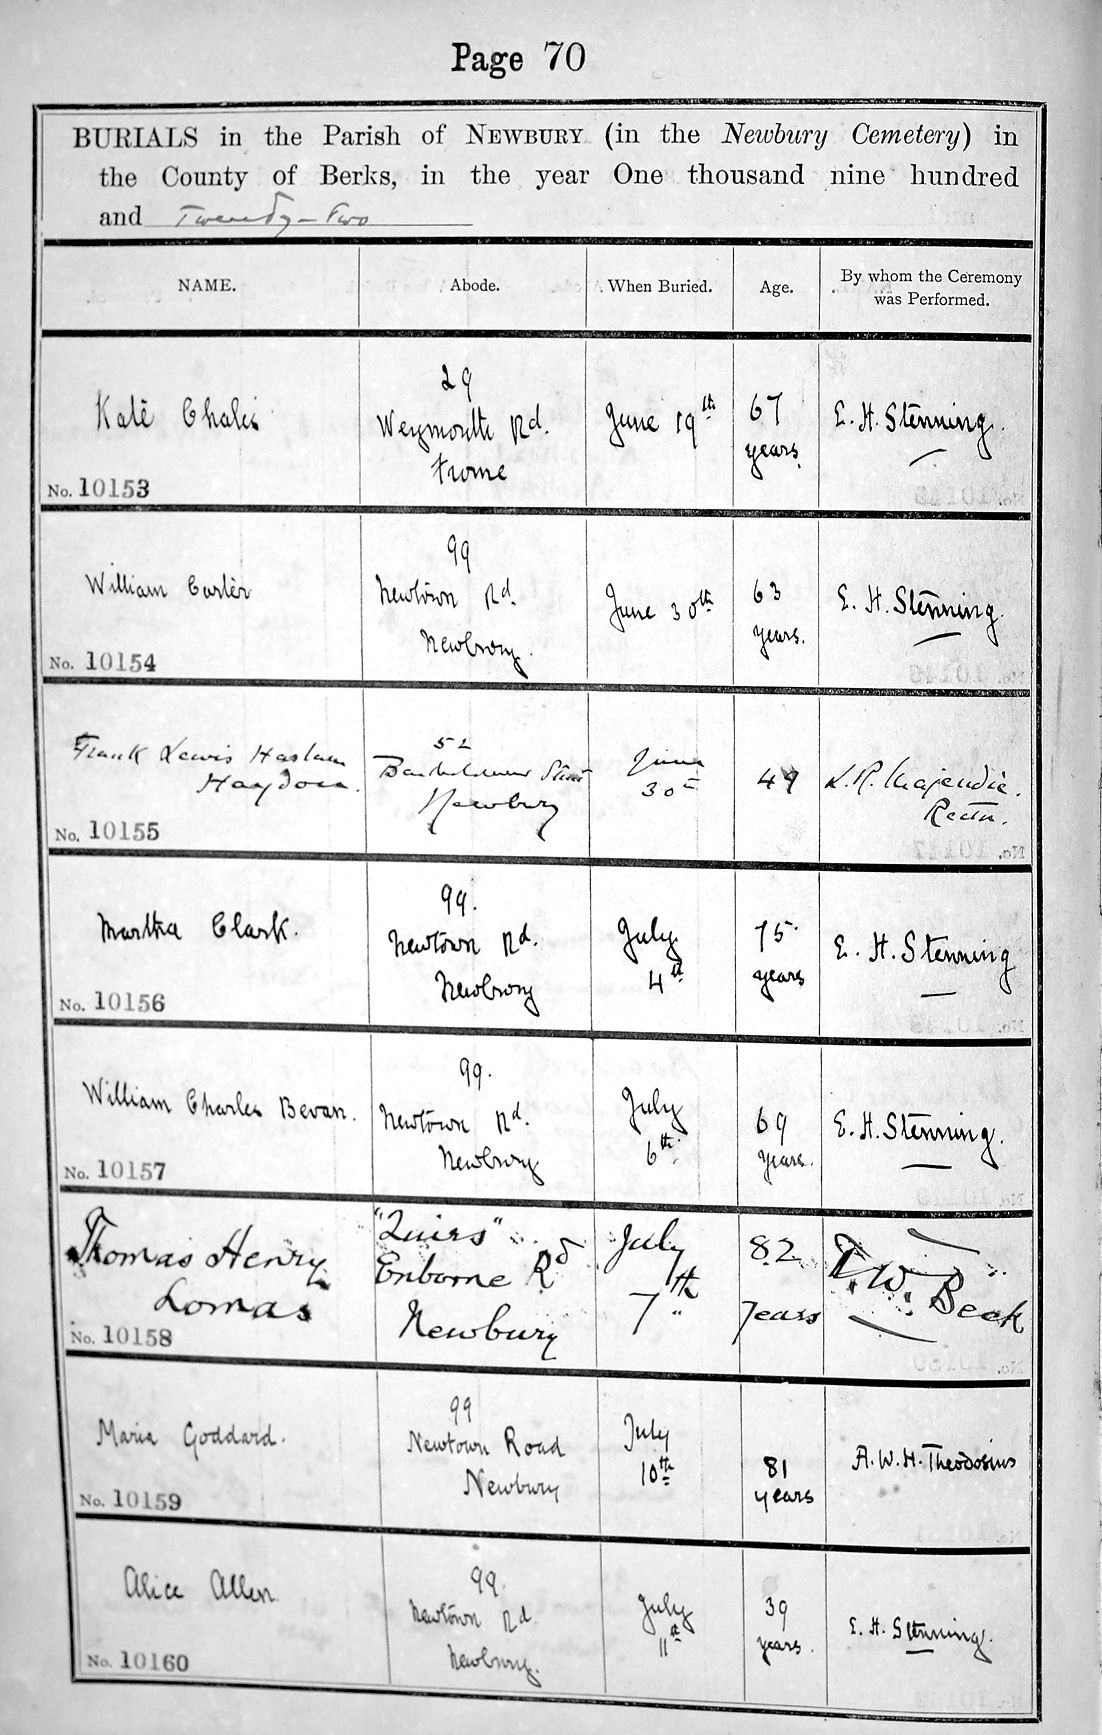 Page 70
BURIALS in the Parish of NEWBURY (in the Newbury Cemetery) in
the County of Berks, in the year One thousand nine hundred
and Twenty-Two
NAME.
Abode.
When Buried.
Age.
By whom the Ceremony
was Performed.
Kate
29
Weymouth Rd.
Frome
June 19th
67
years
E. H. Stenning.
No. 10153
William Carter
99
Newtown Rd.
Newbury.
June 30th
63
years.
E. H. Stenning.
No. 10154
Frank Lewis Haslam
Haydon.
52
Bartholomew Street
Newbury
June
30th
49
L. R. Majendie.
Rector.
No. 10155
Martha Clark.
99.
Newtown Rd.
Newbury
July
4th
75
years
E. H. Stenning
No. 10156
William Charles Bevan.
99.
Newtown Rd.
Newbury
July
6th
69
years.
E. H. Stenning.
No. 10157
Thomas Henry
Lomas
Enborne Rd
Newbury
July
7th
82
years
W. Beck
No. 10158
Maria Goddard.
99
Newtown Road
Newbury
July
10th
81
years
A. W. H. Theodosius
No. 10159
Alice Allen
99.
Newtown Rd
Newbury.
July
11th
39
years.
E. H. Stenning.
No. 10160